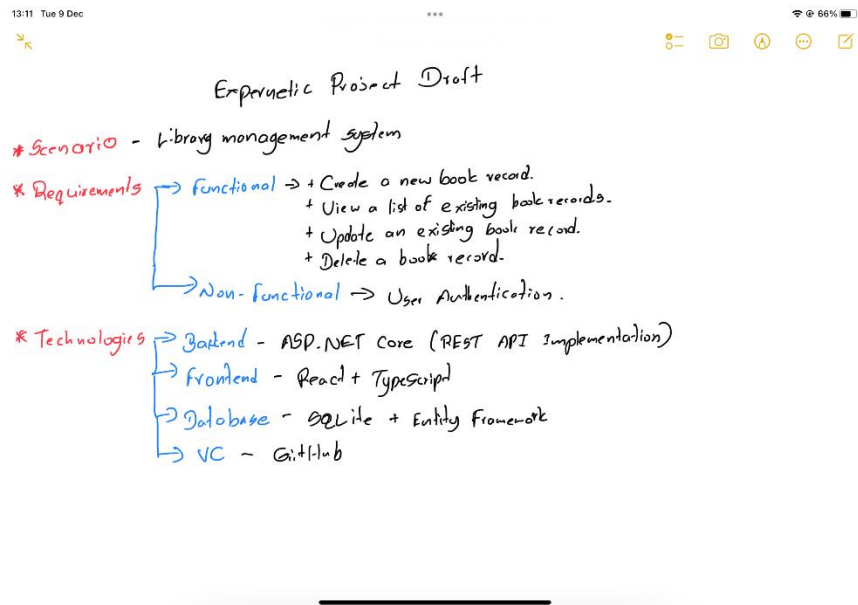 13:11 Tue 9 Dec
66%
Expernetic Project Draft
* Scenario - Library management system
* Requirements → Functional → + Create a new book record.
+ View a list of existing book records.
+ Update an existing book record.
+ Delete a book record.
→ Non-Functional → User Authentication.
* Technologies → Backend - ASP.NET Core (REST API Implementation)
→ Frontend - React + TypeScript
→ Database - SQLite + Entity Framework
→ VC - GitHub